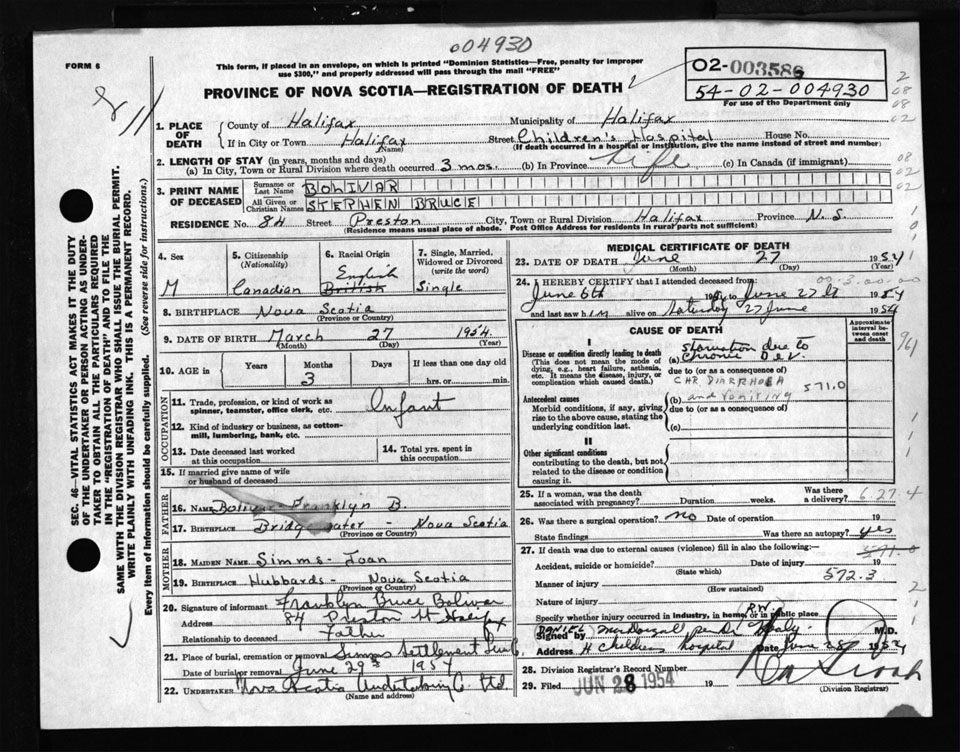 004930
FORM 6
This form, if placed in an envelope, on which is printed "Dominion Statistics—Free, penalty for improper
use $300," and properly addressed will pass through the mail "FREE"
PROVINCE OF NOVA SCOTIA—REGISTRATION OF DEATH
02-003586
54-02-004930
For use of the Department only
1. PLACE OF DEATH
County of Halifax Municipality of Halifax
If in City or Town Halifax Street Children's Hospital House No.
(Name) (If death occurred in a hospital or institution, give the name instead of street and number)
2. LENGTH OF STAY (in years, months and days)
(a) In City, Town or Rural Division where death occurred 3 mos. (b) In Province Life (c) In Canada (if immigrant)
3. PRINT NAME OF DECEASED
Surname or Last Name BOLIVAR
All Given or Christian Names STEPHEN BRUCE
RESIDENCE No. 84 Street Preston City, Town or Rural Division Halifax Province N.S.
(Residence means usual place of abode. Post Office Address for residents in rural parts not sufficient)
4. Sex M
5. Citizenship (Nationality) Canadian
6. Racial Origin English British
7. Single, Married, Widowed or Divorced (write the word) Single
8. BIRTHPLACE Nova Scotia
(Province or Country)
9. DATE OF BIRTH March 27 1954
(Month) (Day) (Year)
10. AGE in Years Months 3 Days If less than one day old
hrs. or min.
OCCUPATION
11. Trade, profession, or kind of work as
spinner, teamster, office clerk, etc. Infant
12. Kind of industry or business, as cotton-
mill, lumbering, bank, etc.
13. Date deceased last worked
at this occupation
14. Total yrs. spent in
this occupation
15. If married give name of wife
or husband of deceased
FATHER
16. NAME Bolivar Franklyn B.
17. BIRTHPLACE Bridgewater - Nova Scotia
(Province or Country)
MOTHER
18. MAIDEN NAME Simms - Joan
19. BIRTHPLACE Hubbards - Nova Scotia
(Province or Country)
20. Signature of informant Franklyn Bruce Bolivar
Address 84 Preston St Halifax
Relationship to deceased Father
21. Place of burial, cremation or removal Simms Settlement
Date of burial or removal June 29 1954
22. UNDERTAKER Nova Scotia Undertaking Co. Ltd
(Name and Address)
MEDICAL CERTIFICATE OF DEATH
23. DATE OF DEATH June 27 1954
(Month) (Day) (Year)
24. I HEREBY CERTIFY that I attended deceased from:
June 6th 1954 to June 27th 1954
and last saw him alive on Saturday 27 June 1954
CAUSE OF DEATH
Approximate interval between onset and death
I
Disease or condition directly leading to death (a) starvation due to
chronic D & V.
(This does not mean the mode of dying, e.g., heart failure, asthenia, etc. It means the disease, injury, or complication which caused death.)
due to (or as a consequence of)
CHR DIARRHOEA
Antecedent causes (b) and VOMITING 571.0
Morbid conditions, if any, giving rise to the above cause, stating the underlying condition last.
due to (or as a consequence of)
(c)
II
Other significant conditions
contributing to the death, but not related to the disease or condition causing it.
25. If a woman, was the death
associated with pregnancy? Duration weeks. Was there a delivery?
6.27.4
26. Was there a surgical operation? no Date of operation 19
State findings Was there an autopsy? yes
27. If death was due to external causes (violence) fill in also the following:— 571.0
Accident, suicide or homicide? Date of injury 19
(State which)
572.3
Manner of injury
(How sustained)
Nature of injury
Specify whether injury occurred in industry, in home, or in public place
Signed by DANIEL MacDougall M.D.
Address H Childrens hospital Date June 28 1954
28. Division Registrar's Record Number
29. Filed JUN 28 1954 19
(Division Registrar)
SEC. 46—VITAL STATISTICS ACT MAKES IT THE DUTY
OF THE UNDERTAKER OR PERSON ACTING AS UNDER-
TAKER TO OBTAIN ALL THE PARTICULARS REQUIRED
IN THE "REGISTRATION OF DEATH" AND TO FILE THE
SAME WITH THE DIVISION REGISTRAR WHO SHALL ISSUE THE BURIAL PERMIT.
WRITE PLAINLY WITH UNFADING INK. THIS IS A PERMANENT RECORD.
Every item of information should be carefully supplied. (See reverse side for instructions.)